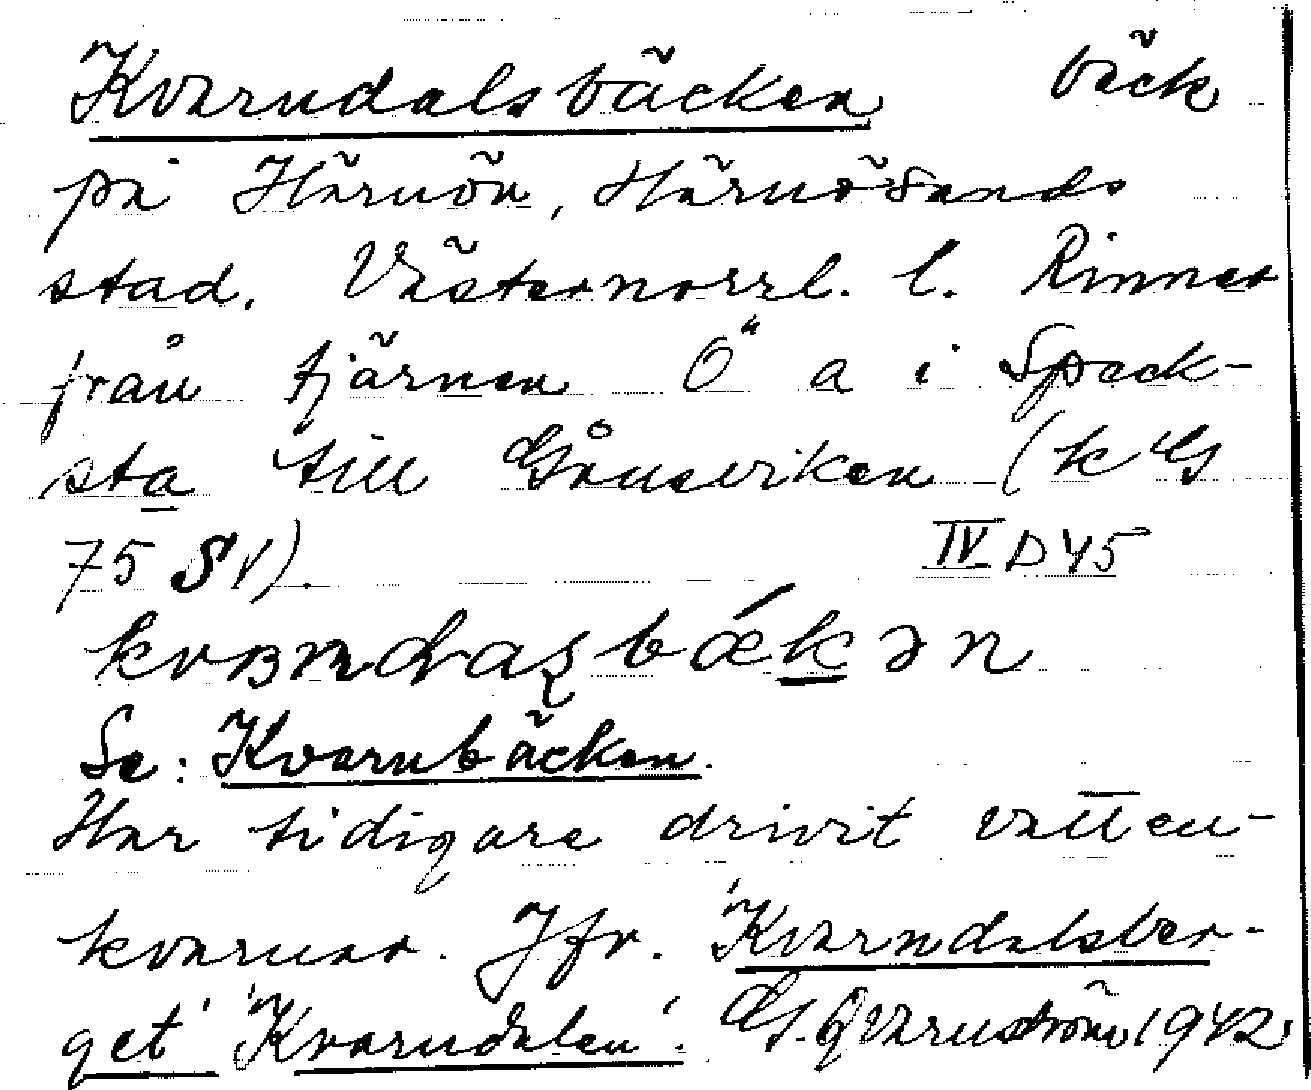 Kvarndalsbäcken bäck
på Härnön, Härnösands
stad. Västernorrl. l. Rinner
från tjärnen Ö a i Speck-
sta till Gånsviken (k G
75 SV). IV D 45
Se: Kvarnbäcken.
Har tidigare drivit vatten-
kvarnar. Jfr. 'Kvarndalsber-
get' 'Kvarndalen'. G. Qvarnström 1942